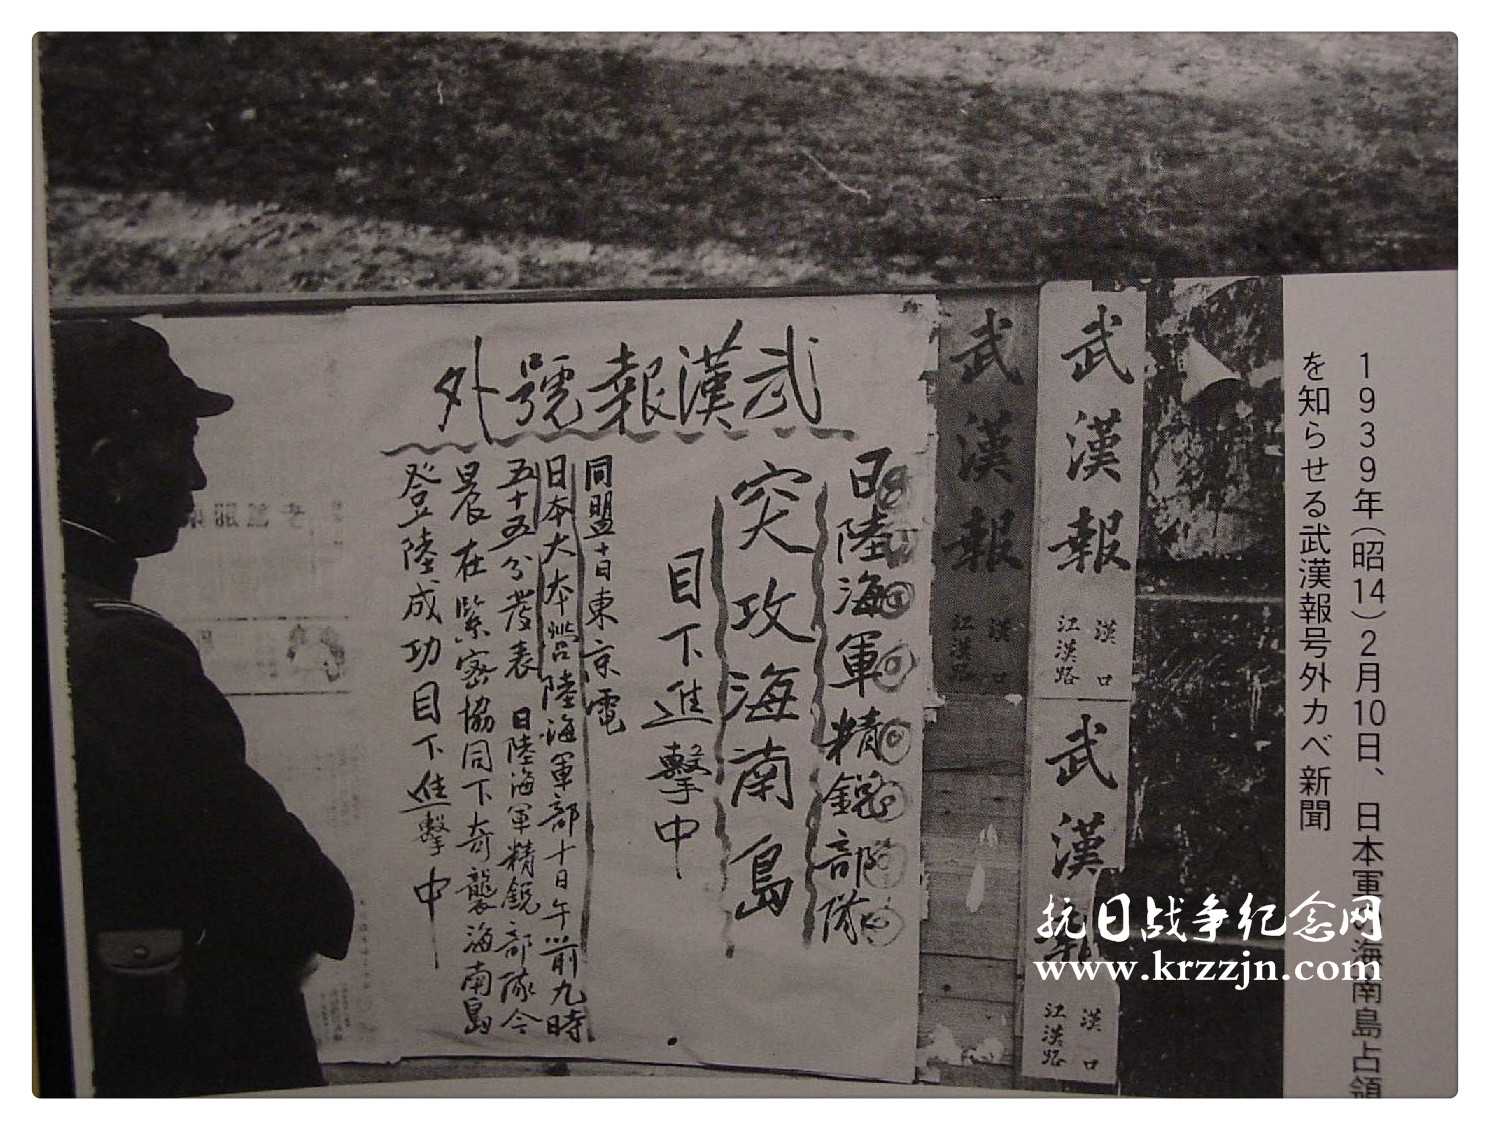 1939年(昭14)2月10日、日本軍の海南島占領
を知らせる武漢報号外カベ新聞
武漢報
漢口
江漢路
武漢報
漢口
江漢路
武漢報
漢口
江漢路
武漢報號外
日陸海軍精銳部隊
突攻海南島
目下進擊中
同盟十日東京電
日本大本營陸海軍部十日午前九時
五十五分發表 日陸海軍精銳部隊今
晨在緊密協同下奇襲海南島
登陸成功目下進擊中
抗日战争纪念网
www.krzzjn.com